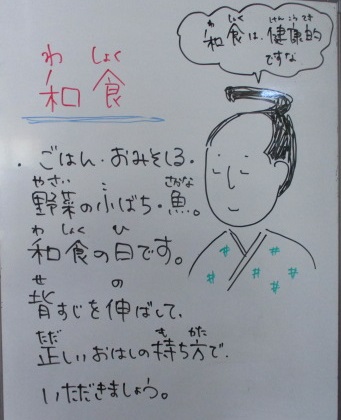 和食
わ しょく
和食は、健康的
わ しょく けんこうてき
ですな
・ごはん・おみそしる・
野菜の小ばち・魚。
やさい こ さかな
和食の日です。
わ しょく ひ
背すじを伸ばして、
せ の
正しいおはしの持ち方で、
ただ も かた
いただきましょう。